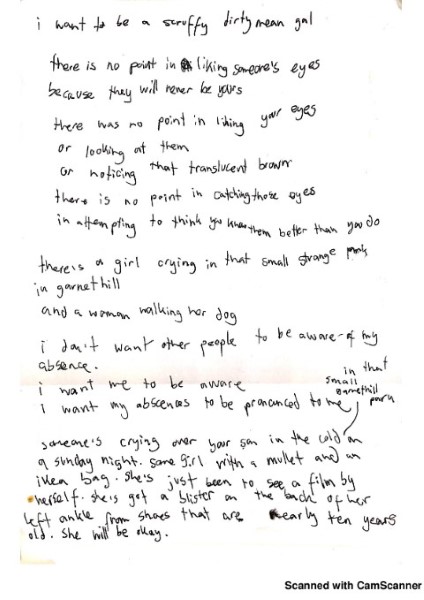 i want to be a scruffy dirty mean gal
there is no point in liking someone's eyes
because they will never be yours
there was no point in liking your eyes
or looking at them
or noticing that translucent brown
there is no point in catching those eyes
in attempting to think you know them better than you do
there's a girl crying in that small strange park
in garnethill
and a woman walking her dog
i don't want other people to be aware of my
absence.
i want me to be aware
i want my abscences to be pronounced to me
in that
small
garnethill
park
someone's crying over your son in the cold on
a sunday night. some girl with a mullet and an
ikea bag. she's just been to see a film by
herself. she's got a blister on the back of her
left ankle from shoes that are nearly ten years
old. she will be okay.
Scanned with CamScanner